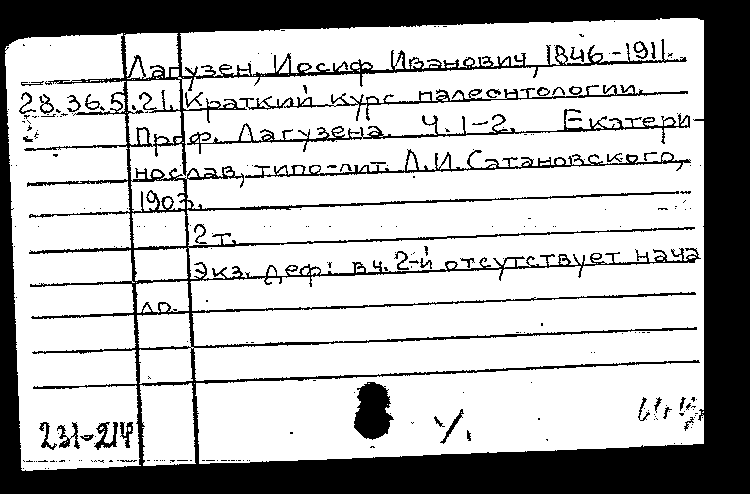 Лагузен, Иосиф Иванович, 1846-1911.
28.36.5.21. Краткий курс палеонтологии.
Проф. Лагузена. Ч. 1-2. Екатери-
нослав, типо-лит. Л.И. Сатановского,
1903.
2 т.
Экз. деф: в ч. 2-й отсутствует нача
ло.
231-214